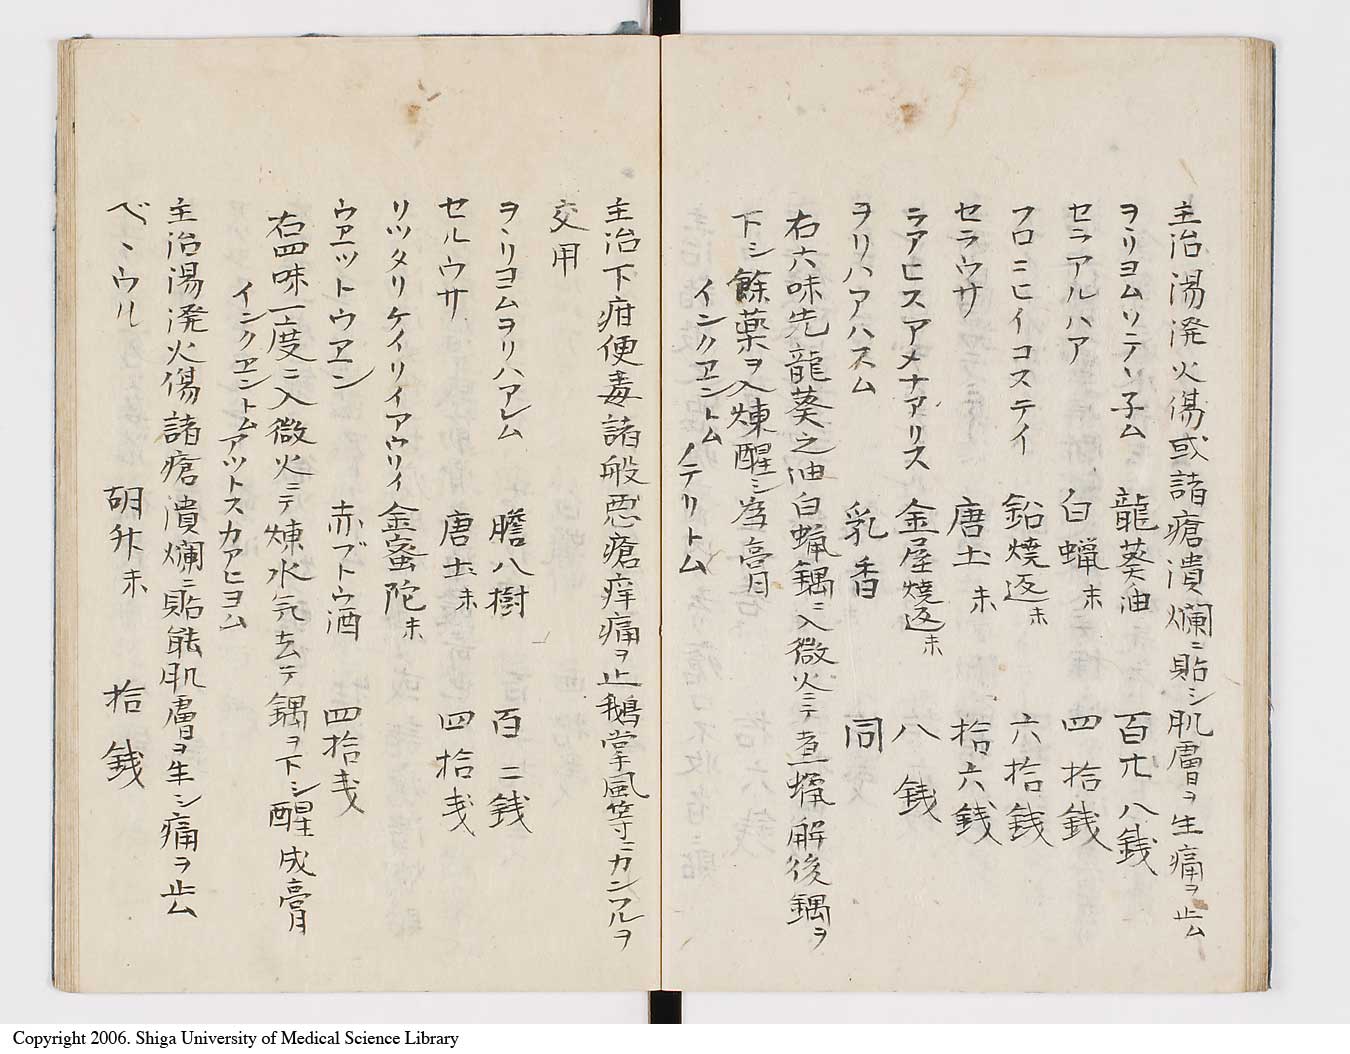 主治湯溌火傷或諸瘡潰爛ニ貼シ肌膚ヲ生痛ヲ止ム
ヲヽリヨムソテソ子ム 龍葵油 百廿八銭
セラアルハア 白蝋末 四拾銭
フロニヒイコステイ 鉛焼返末 六拾銭
セラウサ 唐土末 拾六銭
ラアヒスアメナアリス 金屋焼返末 八銭
ヲリハアハスム 乳香 同
右六味先龍葵之油白蝋鍋ニ入微火ニテ煮蝋解後鍋ヲ
下シ餘薬ヲ入煉醒シ為膏
インクヱントム ノテリトム
主治下疳便毒諸般悪瘡痒痛ヲ止鵝掌風等ニカンフルヲ
交用
ヲヽリヨムヲリハアレム 膽八樹 百二銭
セルウサ 唐土末 四拾戔
リツタリケイリイアウリイ 金蜜陀末
ウヱットウヱン 赤ブトウ酒 四拾戔
右四味一度ニ入微火ニテ煉水気去テ鍋ヲ下シ醒成膏
インクヱントムアツトスカアヒヨム
主治湯溌火傷諸瘡潰爛ニ貼能肌膚ヲ生シ痛ヲ止ム
ベヽウル 胡升末 拾銭
Copyright 2006. Shiga University of Medical Science Library